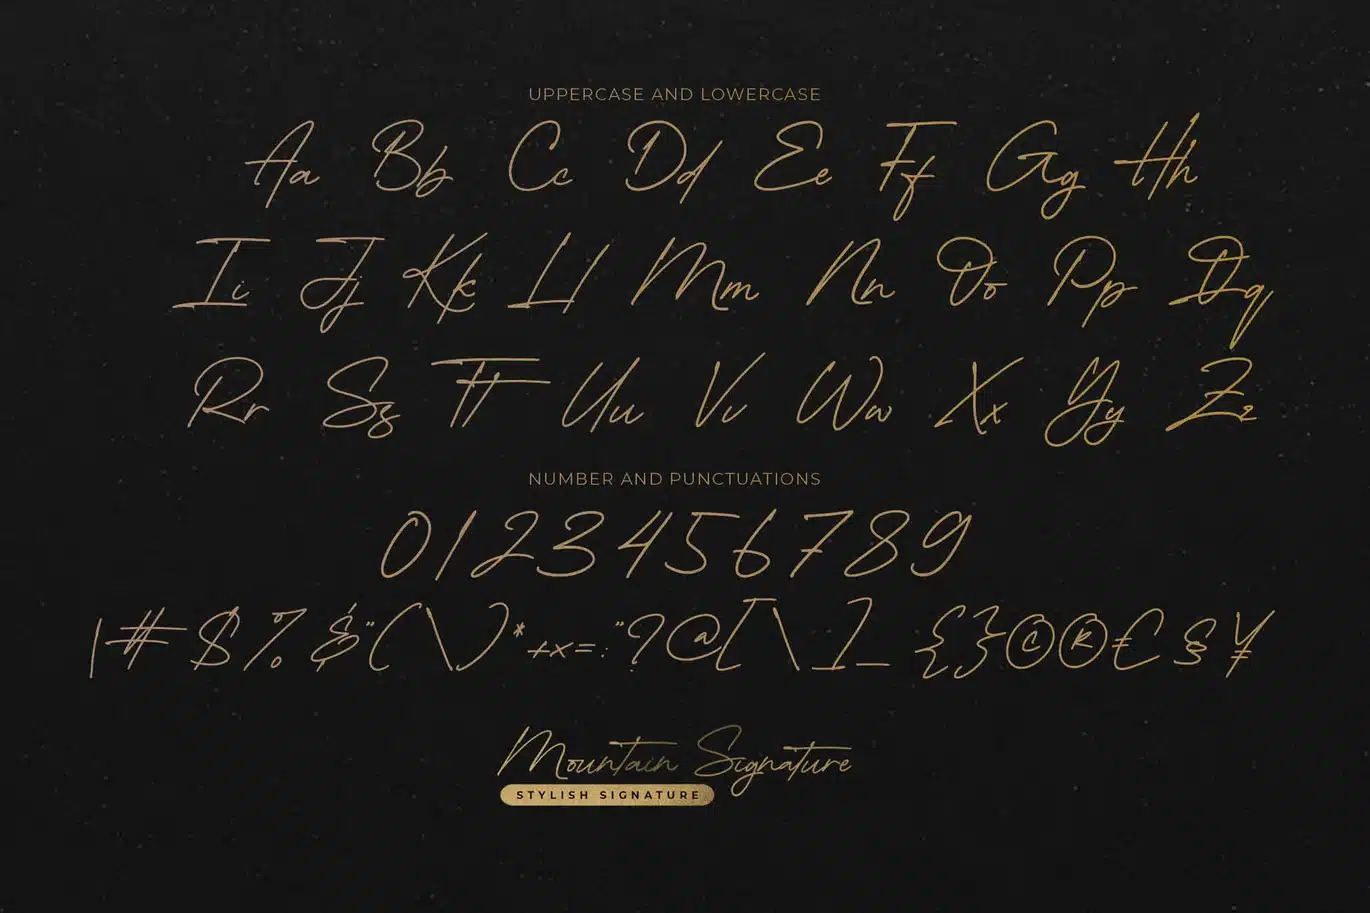 UPPERCASE AND LOWERCASE
Aa Bb Cc Dd Ee Ff Gg Hh
Ii Jj Kk Ll Mm Nn Oo Pp Qq
Rr Ss Tt Uu Vv Ww Xx Yy Zz
NUMBER AND PUNCTUATIONS
0123456789
|#$%&"(\)*+x=:"?@[\]_{}©®€§¥
Mountain Signature
STYLISH SIGNATURE